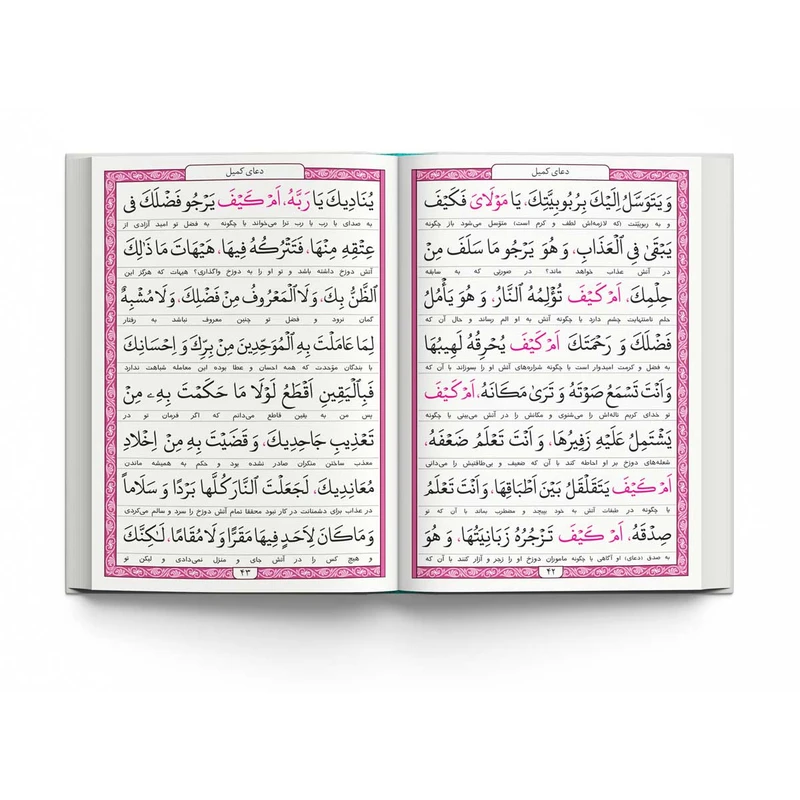 دعای کمیل
وَ يَتَوَسَّلُ اِلَيْكَ بِرُبُوبِيَّتِكَ، يَا مَوْلَايَ فَكَيْفَ
و به ربوبیتت (که لازمه‌اش لطف و کرم است) متوسّل می‌شود باز چگونه
يَبْقىٰ فِي الْعَذَابِ، وَ هُوَ يَرْجُو مَا سَلَفَ مِنْ
در آتش عذاب خواهد ماند؟ در صورتی که به سابقه
حِلْمِكَ، اَمْ كَيْفَ تُؤْلِمُهُ النَّارُ، وَ هُوَ يَأْمُلُ
حلم نامنتهایت چشم دارد یا چگونه آتش به او الم رساند و حال آن که
فَضْلَكَ وَ رَحْمَتَكَ اَمْ كَيْفَ يُحْرِقُهُ لَهِيبُهَا
به فضل و کرمت امیدوار است یا چگونه شراره‌های آتش او را بسوزاند با آن که
وَ اَنْتَ تَسْمَعُ صَوْتَهُ وَ تَرىٰ مَكَانَهُ، اَمْ كَيْفَ
تو خدای کریم ناله‌اش را می‌شنوی و مکانش را در آتش می‌بینی یا چگونه
يَشْتَمِلُ عَلَيْهِ زَفِيرُهَا، وَ اَنْتَ تَعْلَمُ ضَعْفَهُ،
شعله‌های دوزخ بر او احاطه کند با آن که ضعیف و بی‌طاقتیش را می‌دانی
اَمْ كَيْفَ يَتَقَلْقَلُ بَيْنَ اَطْبَاقِهَا، وَ اَنْتَ تَعْلَمُ
یا چگونه در طبقات آتش به خود بپیچد و مضطرب بماند با آن که تو
صِدْقَهُ، اَمْ كَيْفَ تَزْجُرُهُ زَبَانِيَتُهَا، وَ هُوَ
به صدق (دعای) او آگاهی یا چگونه ماموران دوزخ او را زجر و آزار کنند با آن که
۴۲
دعای کمیل
يُنَادِيكَ يَا رَبَّهُ، اَمْ كَيْفَ يَرْجُو فَضْلَكَ فِي
به صدای یا رب یا رب ترا می‌خواند یا چگونه به فضل تو امید آزادی از
عِتْقِهِ مِنْهَا، فَتَتْرُكُهُ فِيهَا، هَيْهَاتَ مَا ذٰلِكَ
آتش دوزخ داشته باشد و تو او را به دوزخ واگذاری؟ هیهات که هرگز این
الظَّنُّ بِكَ، وَلَا الْمَعْرُوفُ مِنْ فَضْلِكَ، وَلَا مُشْبِهٌ
گمان نرود و فضل تو چنین معروف نباشد به رفتار
لِمَا عَامَلْتَ بِهِ الْمُوَحِّدِينَ مِنْ بِرِّكَ وَ اِحْسَانِكَ
با بندگان موّحدت که همه احسان و عطا بوده این معامله شباهت ندارد
فَبِالْيَقِينِ اَقْطَعُ لَوْلَا مَا حَكَمْتَ بِهِ مِنْ
پس من به یقین قاطع می‌دانم که اگر فرمان تو در
تَعْذِيبِ جَاحِدِيكَ، وَ قَضَيْتَ بِهِ مِنْ اِخْلَادِ
معذب ساختن منکران صادر نشده بود و حکم به همیشه ماندن
مُعَانِدِيكَ، لَجَعَلْتَ النَّارَ كُلَّهَا بَرْدًا وَ سَلَامًا
در عذاب برای دشمنانت در کار نبود محققا تمام آتش دوزخ را سرد و سالم می‌کردی
وَ مَا كَانَ لِاَحَدٍ فِيهَا مَقَرًّا وَلَا مُقَامًا، لٰكِنَّكَ
و هیچ کس را در آتش جای و منزل نمی‌دادی و لیکن تو
۴۳